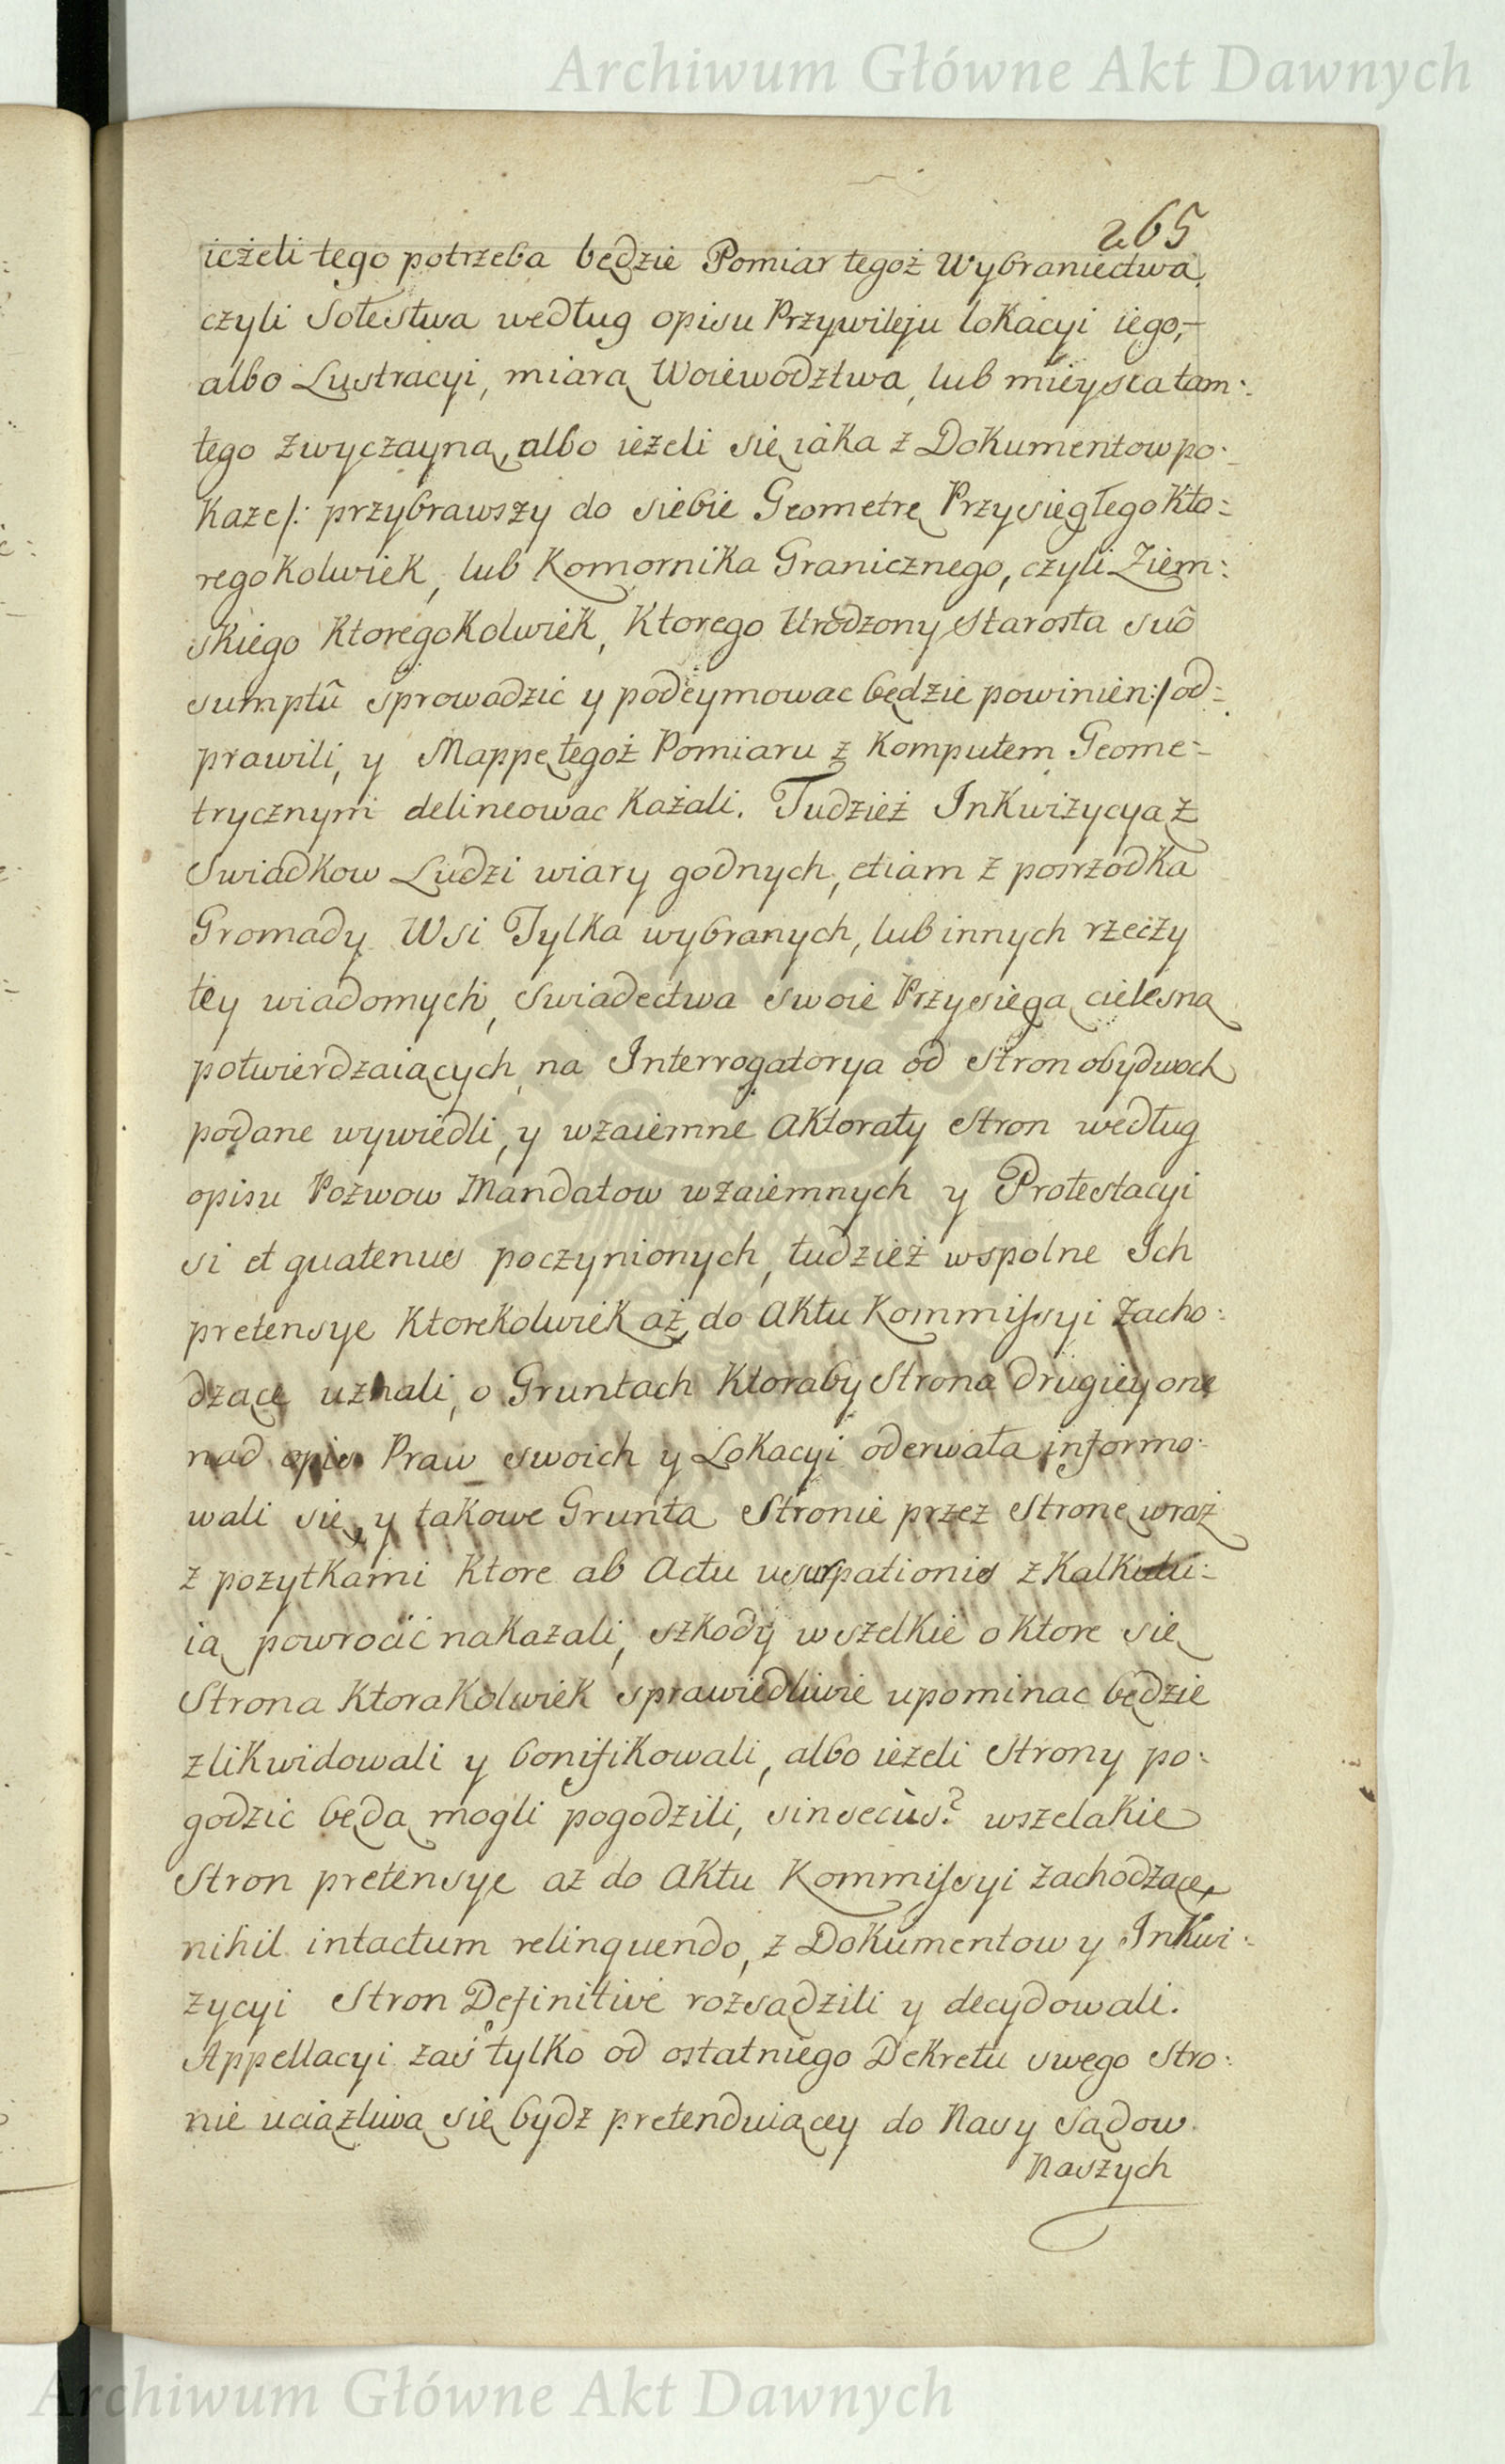 Archiwum Główne Akt Dawnych
265
ieżeli tego potrzeba będzie Pomiar tegoż Wybraniectwa
czyli Sołestwa według opisu Przywileju lokacyi iego,
albo Lustracyi, miarą Woiewodztwa, lub mieysca tam:
tego zwyczayną, albo ieżeli się iaka z Dokumentow po:
każe/: przybrawszy do siebie Geometrę Przysięgłego Kto:
regokolwiek, lub Komornika Granicznego, czyli Ziem:
skiego Ktoregokolwiek, Ktorego Urodzony Starosta suô
sumptû sprowadzić y podeymowac będzie powinien:/ od:
prawili, y Mappę tegoż Pomiaru z Komputem Geome:
trycznym delineowac Kazali. Tudzież Inkwizycyą z
Swiadkow Ludzi wiary godnych, etiam z posrzodka
Gromady Wsi Tylka wybranych, lub innych rzeczy
tey wiadomych, swiadectwa swoie Przysięgą cielesną
potwierdzaiących, na Interrogatorya od Stron obydwoch
podane wywiedli, y wzaiemne Aktoraty Stron według
opisu Pozwow Mandatow wzaiemnych y Protestacyi
si et quatenus poczynionych, tudzież wspolne Ich
pretensye Ktorekolwiek aż do Aktu Kommissyi zacho:
dzące uznali, o Gruntach Ktoraby Strona drugiey one
nad opis Praw swoich y Lokacyi oderwała informo:
wali się, y takowe Grunta Stronie przez Stronę wraz
z pozytkami Ktore ab Actu usurpationis zKalkulu:
ią powrocić nakazali, szkody wszelkie o Ktore się
Strona Ktorakolwiek sprawiedliwie upominac będzie
zlikwidowali y bonifikowali, albo ieżeli Strony po:
godzic będą mogli pogodzili, sin secùs? wszelakie
Stron pretensye az do Aktu Kommissyi zachodzące,
nihil intactum relinquendo, z Dokumentow y Inkwi:
zycyi Stron Definitivè rozsądzili y decydowali.
Appellacyi zaś tylko od ostatniego Dekretu swego Stro:
nie uciążliwą się bydz pretenduiącey do Nas y Sądow
Naszych
Archiwum Główne Akt Dawnych